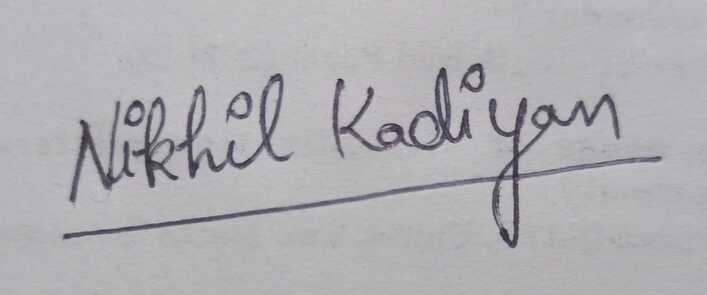 Nikhil Kadiyan